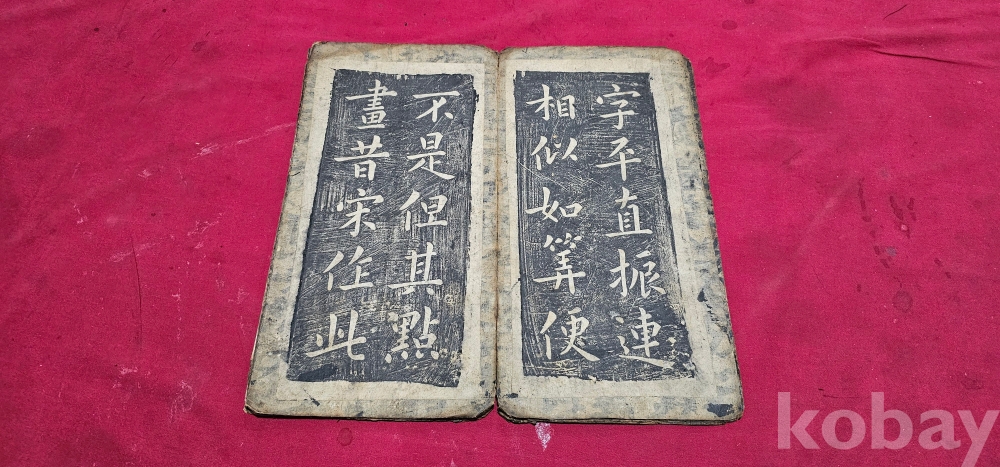 字平直振連
相似如筭便
不是但其點
畫昔宋作此
kobay